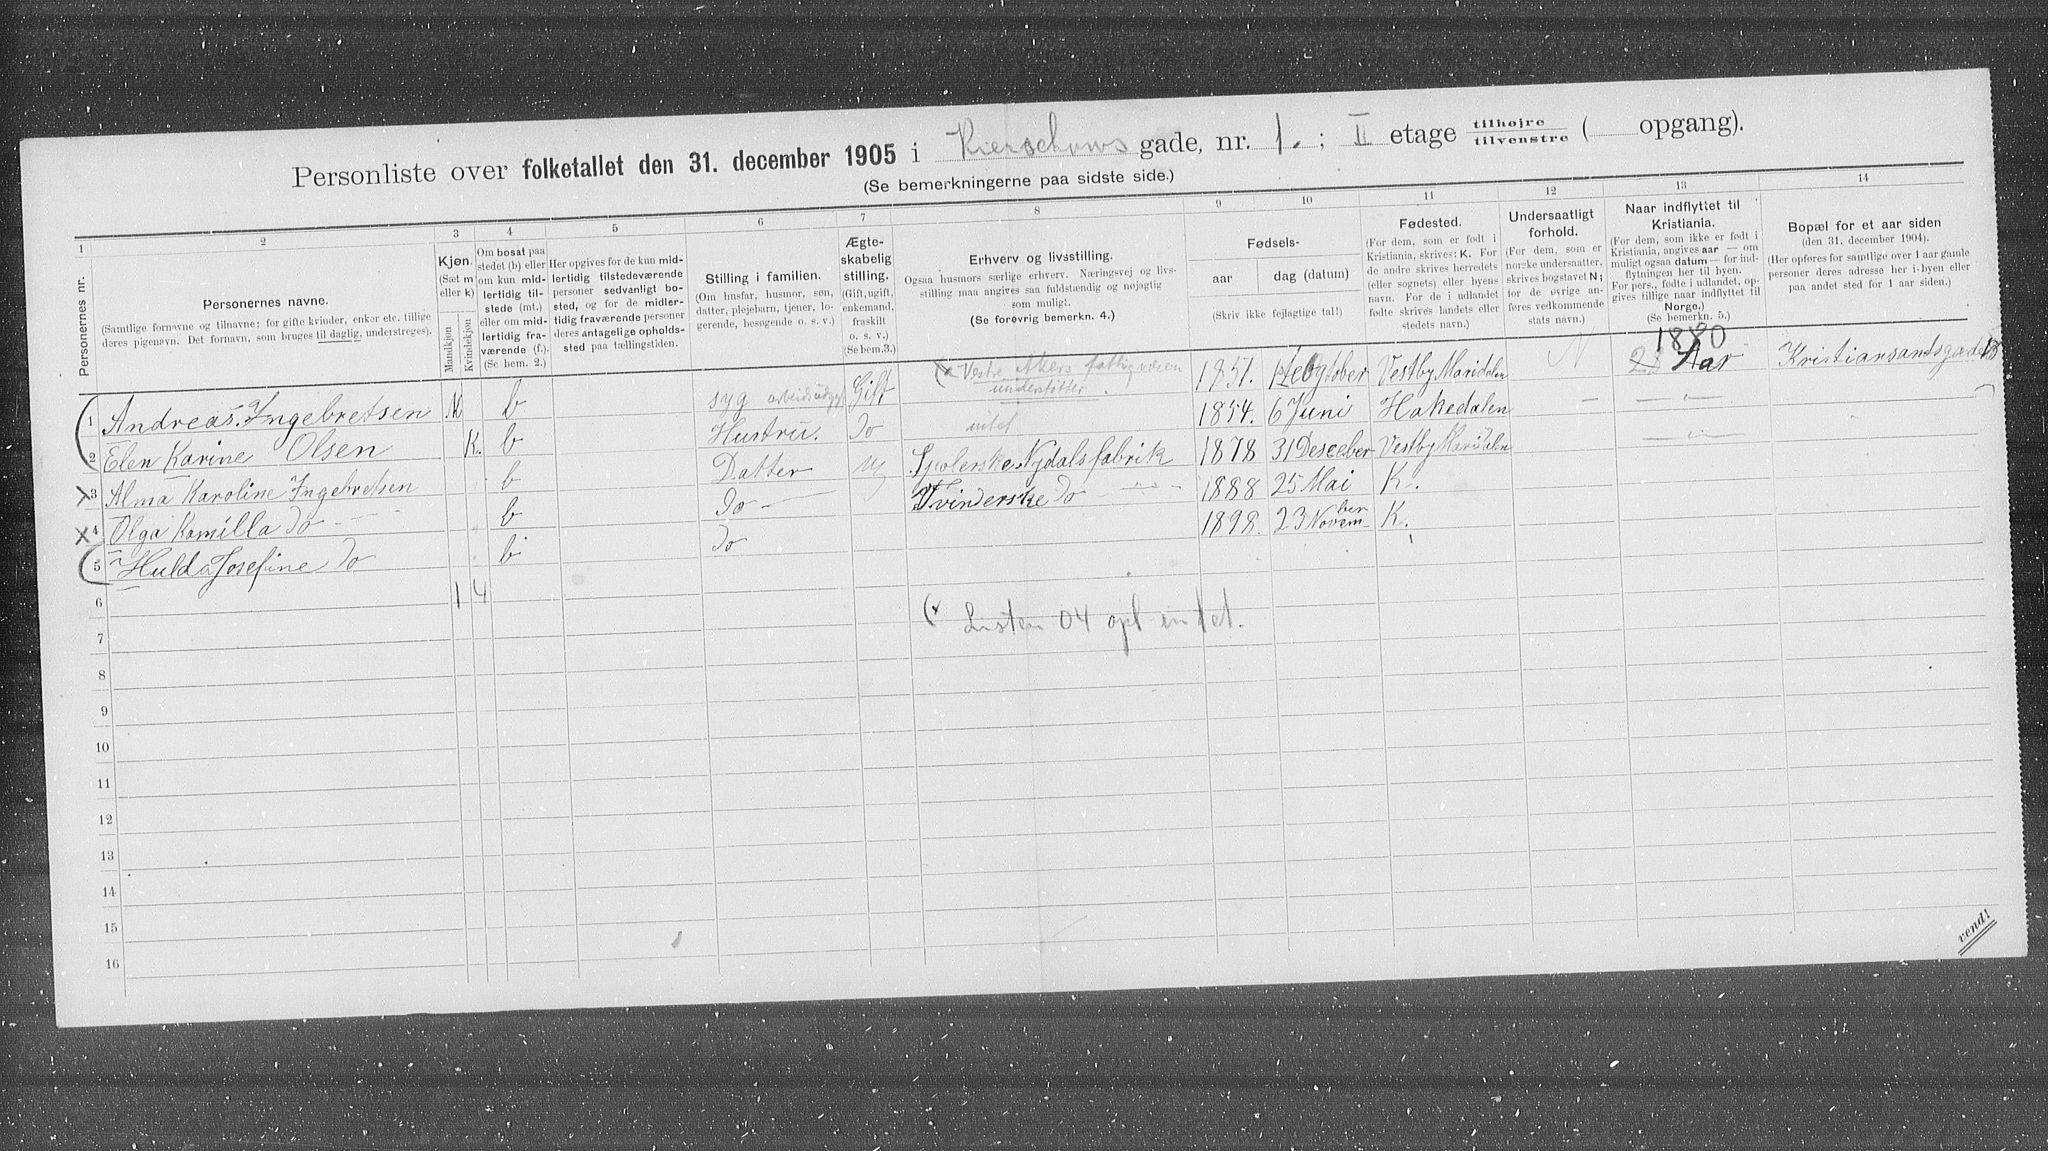 Personliste over folketallet den 31. december 1905 i Kierschows gade, nr. 1. ; II etage tilhøjre / tilvenstre ( opgang).
(Se bemerkningerne paa sidste side.)
1 2 3 4 5 6 7 8 9 10 11 12 13 14
Personernes nr.
Personernes navne.
(Samtlige fornavne og tilnavne; for gifte kvinder, enker etc. tillige
deres pigenavn. Det fornavn, som bruges til daglig, understreges).
Kjøn.
(Sæt m
eller k)
Mandkjøn
Kvindekjøn
Om bosat paa
stedet (b) eller
om kun mid-
lertidig til-
stede (mt.)
eller om mid-
lertidig fra-
værende (f.).
(Se bem. 2.)
Her opgives for de kun mid-
lertidig tilstedeværende
personer sedvanligt bo-
sted, og for de midler-
tidig fraværende personer
deres antagelige opholds-
sted paa tællingstiden.
Stilling i familien.
(Om husfar, husmor, søn,
datter, plejebarn, tjener, lo-
gerende, besøgende o. s. v.)
Ægte-
skabelig
stilling.
(Gift, ugift,
enkemand,
fraskilt
o. s. v.)
(Se bem. 3.)
Erhverv og livsstilling.
Ogsaa husmors særlige erhverv. Næringsvej og livs-
stilling maa angives saa fuldstændig og nøjagtig
som muligt.
(Se forøvrig bemerkn. 4.)
Fødsels-
aar
dag (datum)
(Skriv ikke fejlagtige tal!)
Fødested.
(For dem, som er født i
Kristiania, skrives: K. For
de andre skrives herredets
(eller sognets) eller byens
navn. For de i udlandet
fødte skrives landets eller
stedets navn.)
Undersaatligt
forhold.
(For dem, som er
norske undersaatter,
skrives bogstavet N;
for de øvrige an-
føres vedkommende
stats navn.)
Naar indflyttet til
Kristiania.
(For dem, som ikke er født i
Kristiania, angives aar — om
muligt ogsaa datum — for ind-
flytningen her til byen.
For pers., fødte i udlandet, op-
gives tillige naar indflyttet til
Norge.)
(Se bemerkn. 5.)
Bopæl for et aar siden
(den 31. december 1904).
(Her opføres for samtlige over 1 aar gamle
personer deres adresse her i byen eller
paa andet sted for 1 aar siden.)
1880
1 Andreas. Ingebretsen M b syg Gift (x Vestre Akers fattigvæsen 1851. Vestby Maridalen N 23 Aar Kristiansandsgade 18
understøtter.
2 Elen Karine Olsen K. b Hustru. Do intet 1854 6 Juni Hakedalen — — " —
3 Alma Karoline Ingebretsen b Datter Ug Spolerske Nydals fabrik 1878 31 Desceber Vestby Maridalen — " —
4 Olga Kamilla Do b Do Tvinderske Do 1888 25 Mai K.
5 Hulda Josefine Do b Do 1898. 23 November K.
6 1 4
(x Listen 04 opl intet.
7
8
9
10
11
12
13
14
15
16
vend!